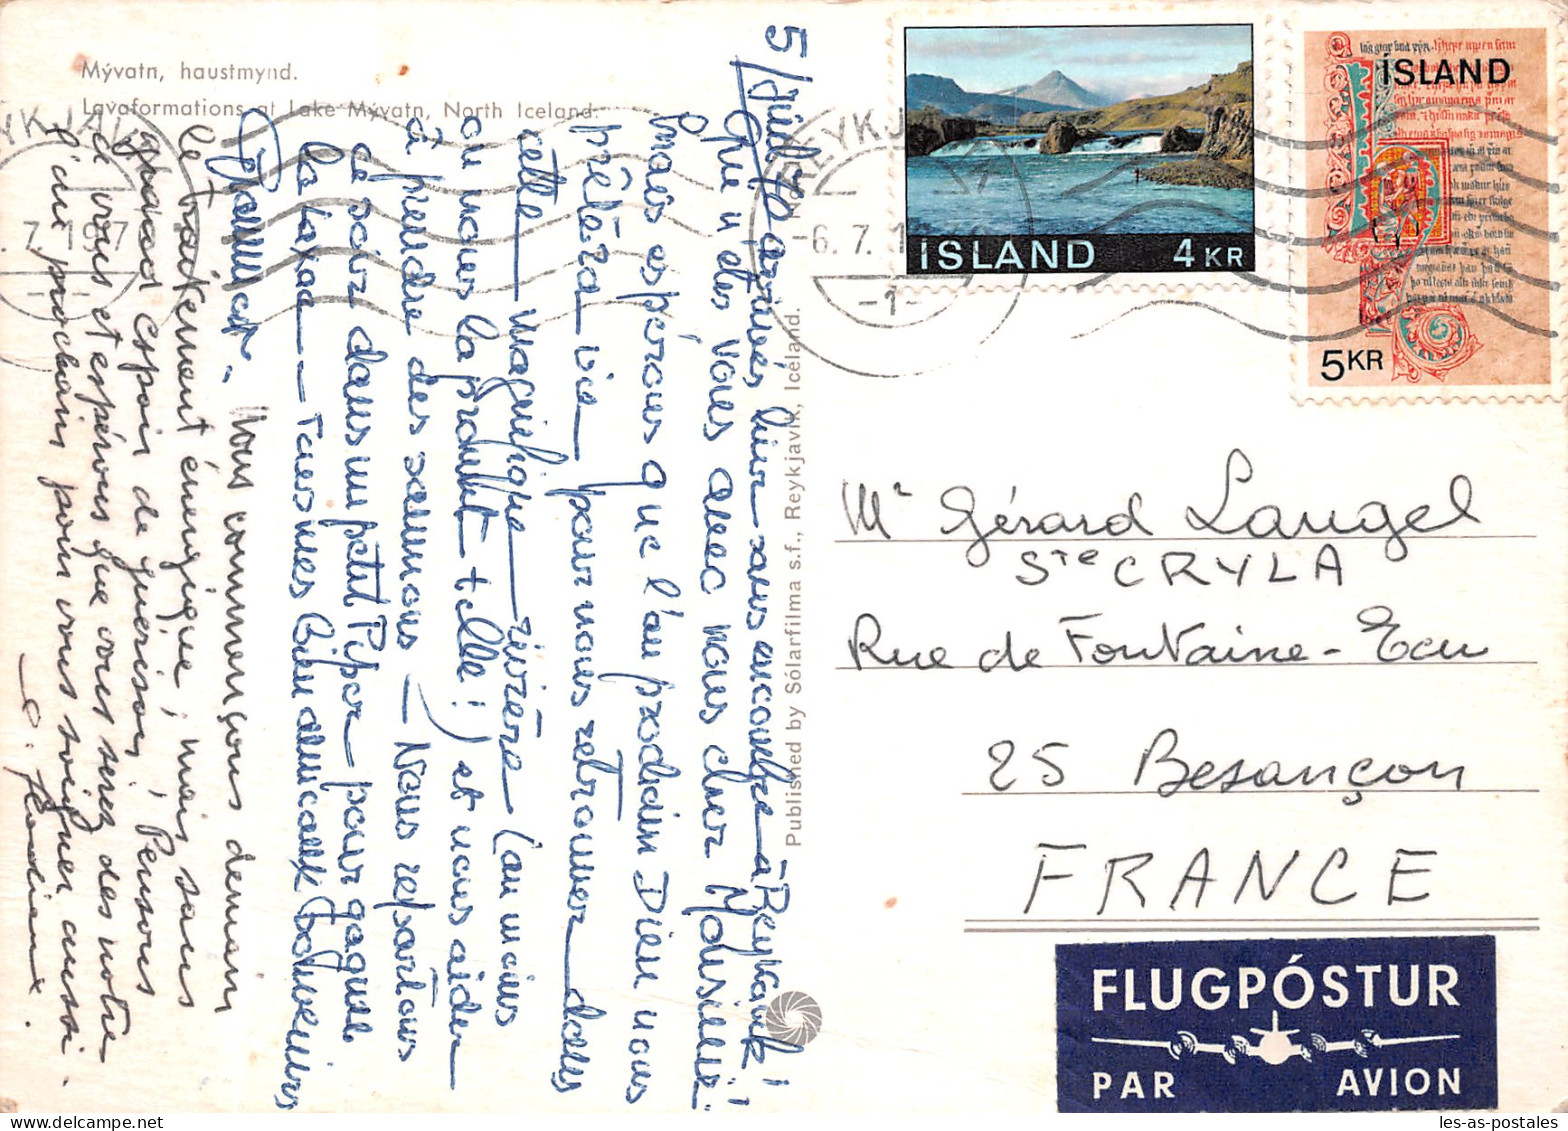 Mývatn, haustmynd.
Lavaformations at Lake Mývatn, North Iceland.
5/juillet arrivés hier sans encombre à Reykjavik!
Que n'êtes vous avec nous cher Monsieur.
mais espérons que l'an prochain Dieu nous
prêtera vie pour nous retrouver dans
cette magnifique rivière (au moins
on nous la promet telle!) et nous aider
à prendre des saumons — Nous repartons
ce soir dans un petit Piper pour gagner
la Laxa — Tous mes Bien amicaux Souvenirs
Nous commençons demain
le traitement énergique, mais sans
grand espoir de guérison, Pensons
à vous et espérons que vous serez des notre
l'année prochain pour vous soigner aussi.
Published by Sólarfilma s.f., Reykjavik, Iceland.
REYKJAVÍK
-6.7.1
-1-
ÍSLAND
4 KR
ÍSLAND
5 KR
Mr Gérard Laugel
Sté CRYLA
Rue de Fontaine-Ecu
25 Besançon
FRANCE
FLUGPÓSTUR
PAR AVION
les-as-postales